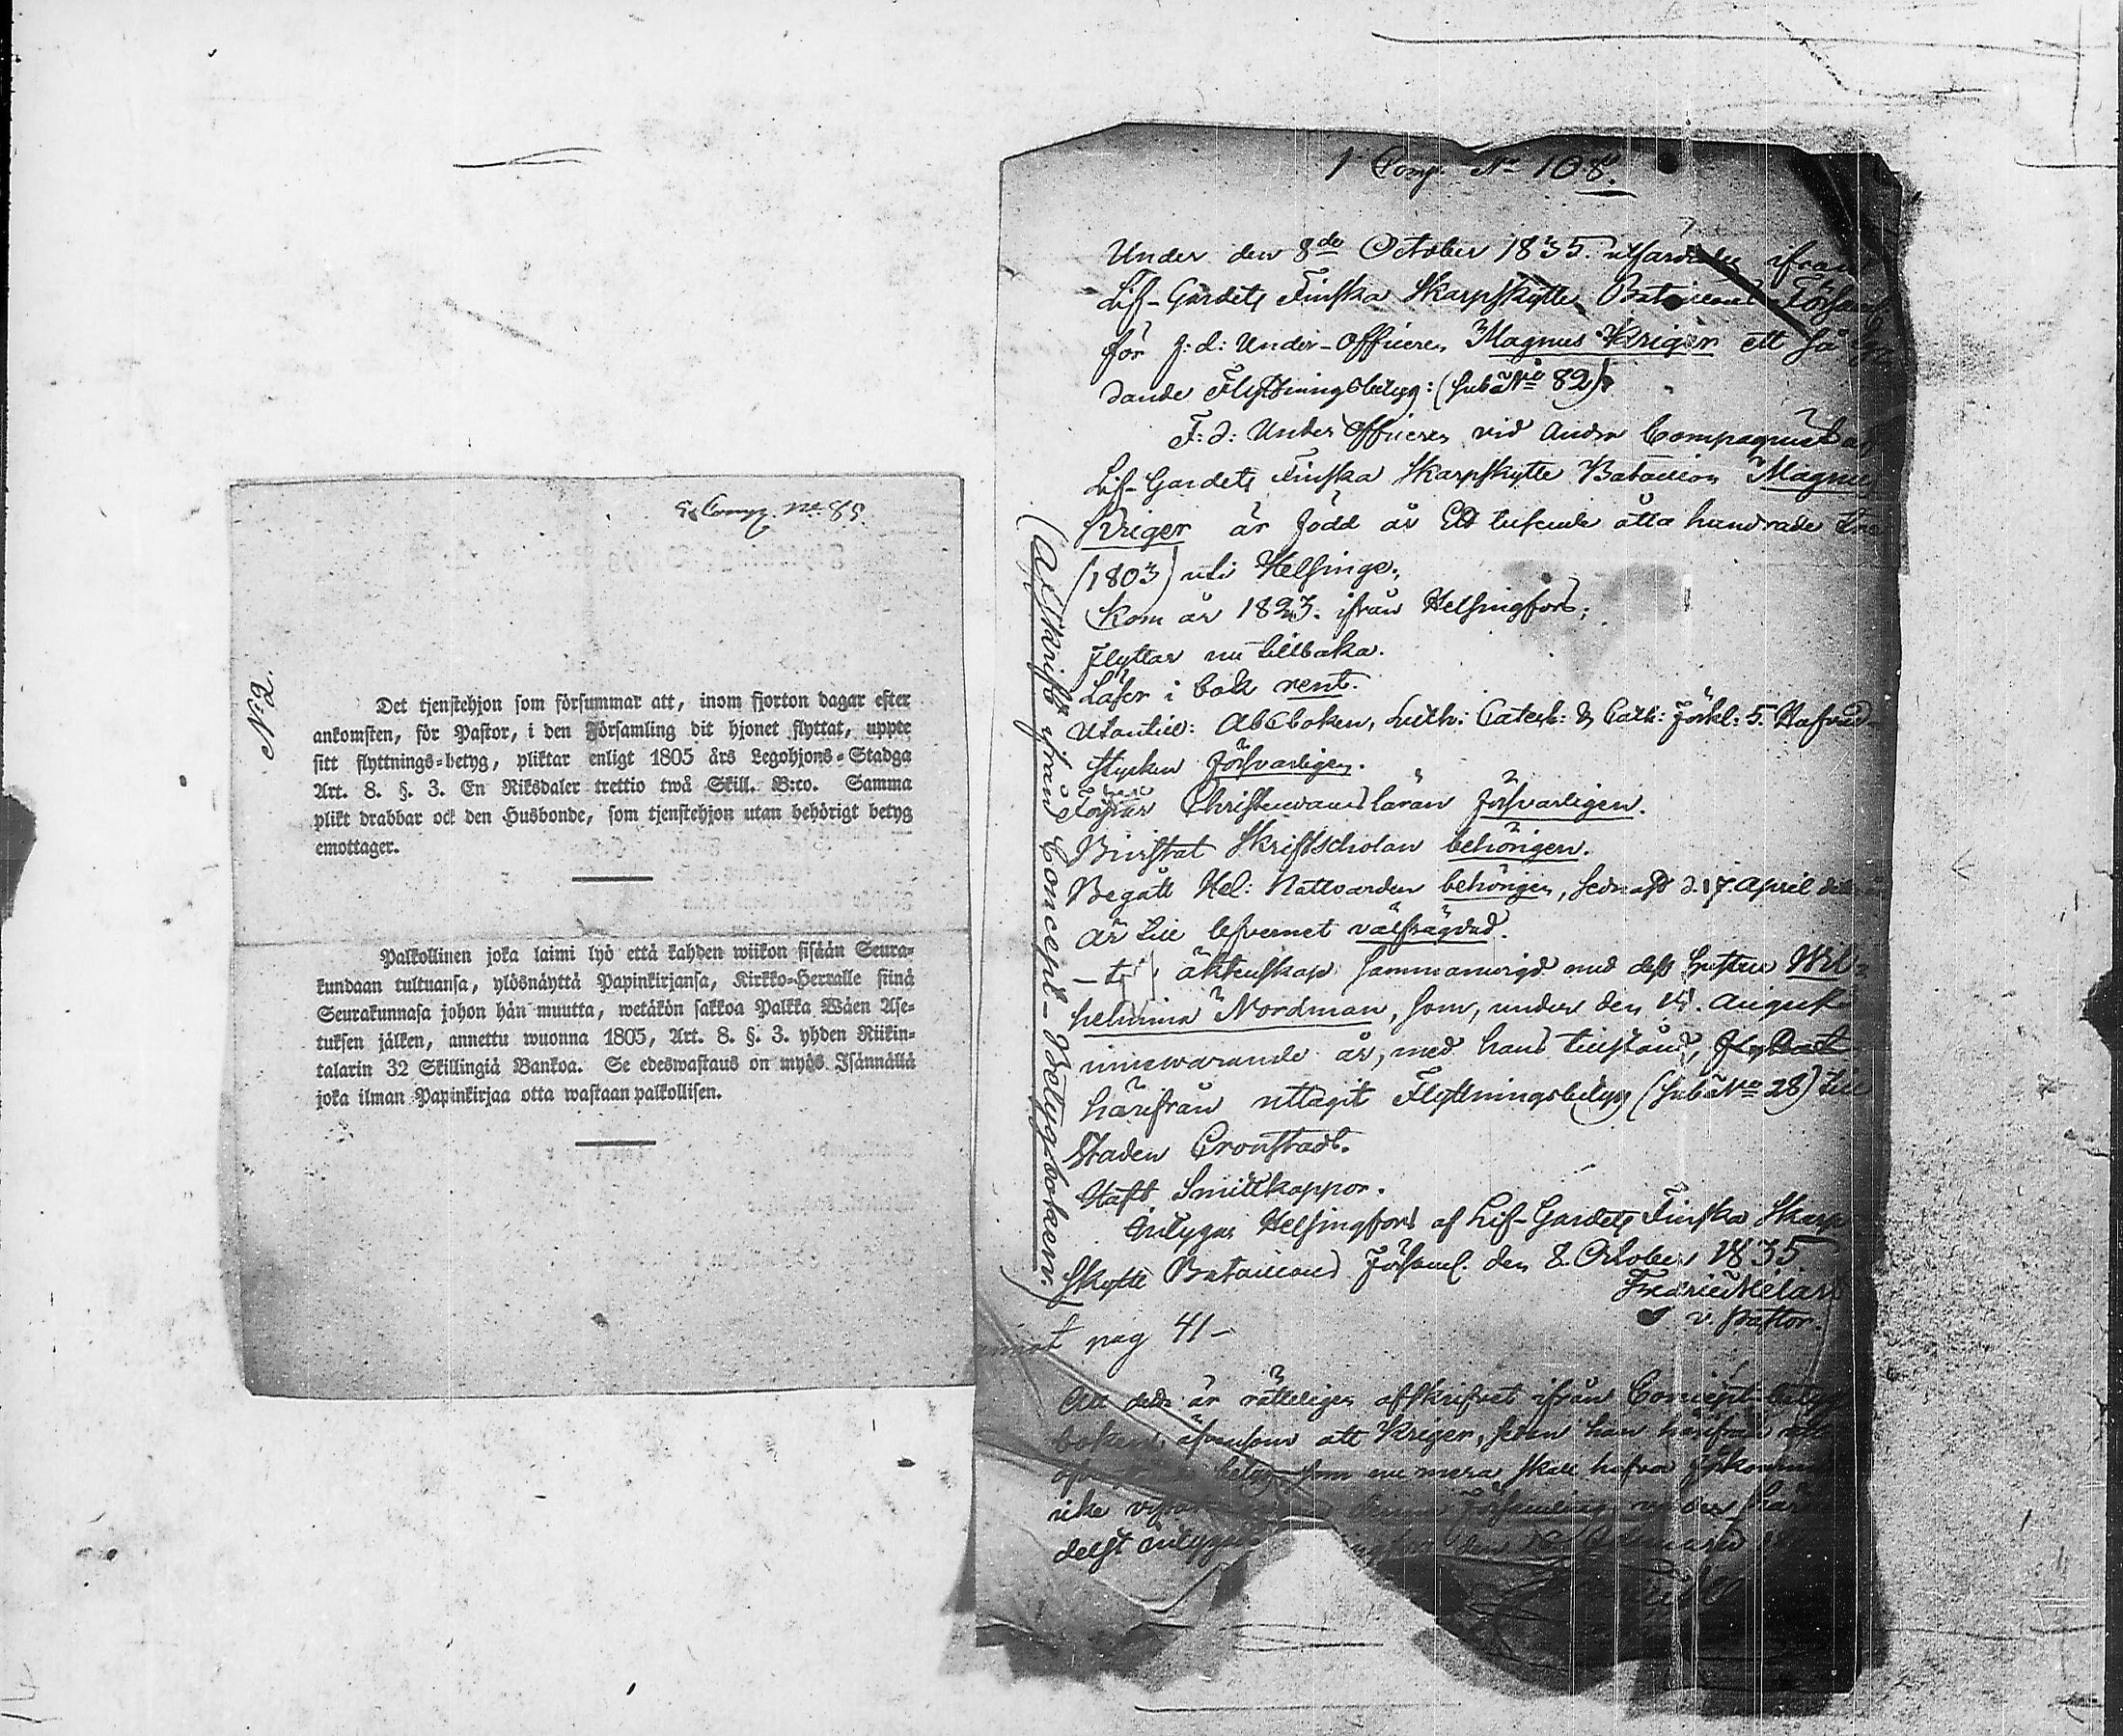 5 Comp. No 85.
No 2.
Det tjenstehjon som försummar att, inom fjorton dagar efter
ankomsten, för Pastor, i den Församling dit hjonet flyttat, uppte
sitt flyttnings-betyg, pliktar enligt 1805 års Legohjons-Stadga
Art. 8. §. 3. En Riksdaler trettio twå Skill. B:co. Samma
plikt drabbar ock den Husbonde, som tjenstehjon utan behörigt betyg
emottager.
Palkollinen joka laimi lyö että kahden wiikon sisään Seura-
kundaan tultuansa, ylösnäyttä Papinkirjansa, Kirkko-Herralle siinä
Seurakunnasa johon hän muutta, wetäkön sakkoa Palkka Wäen Ase-
tuksen jälken, annettu wuonna 1805, Art. 8. §. 3. yhden Riikin-
talarin 32 Skillingiä Bankoa. Se edeswastaus on myös Isännällä
joka ilman Papinkirjaa otta wastaan palkollisen.
1 Comp. No 108.
Under den 8de October 1835. utfärdades ifrån
Lif-Gardets Finska Skarpskytte Bataillons Församl.
för f: d: Under-Officeren Magnus Kriger ett så ly-
dande Flyttningsbetyg: (sub No 82).
F: d: Under Officeren vid Andra Compagniet af
Lif-Gardets Finska Skarpskytte Bataillon Magnus
Kriger är född år Ett tusende åtta hundrade tre
(1803) uti Helsinge;
Kom år 1823. ifrån Helsingfors;
Flyttar nu tillbaka.
Läser i bok rent.
Utantill: Abcboken, Luth: Catech: & Cath: Förkl: 5. Hufvud-
stycken försvarligen.
Förstår Christendomsläran försvarligen.
Bivistat Skriftscholan behörigen.
Begått Hel: Nattvarden behörigen, sednast d. 17. April detta år
Är till lefvernet välfrägdad.
äktenskap sammanvigd med dess hustru Wil-
helmina Nordman, som, under den 14. August
innevarande år, med hans tillstånd, flyttat
härifrån uttagit Flyttningsbetyg (sub No 28) till
Staden Cronstadt.
Haft Smittkoppor.
Intygar Helsingfors af Lif-Gardets Finska Skarp
Skytte Bataillons Församl. den 8. October 1835.
Fredric Helan
v. Pastor.
(Afskrift ifrån Concept-Betygsboken)
pag 41-
Att detta är rätteligen afskrifvet ifrån Concept-betygs
boken, äfvensom att Kriger, sedan han härifrån
betyg, som nu mera skall hafva förkommit
icke Församling under
delst intygas den